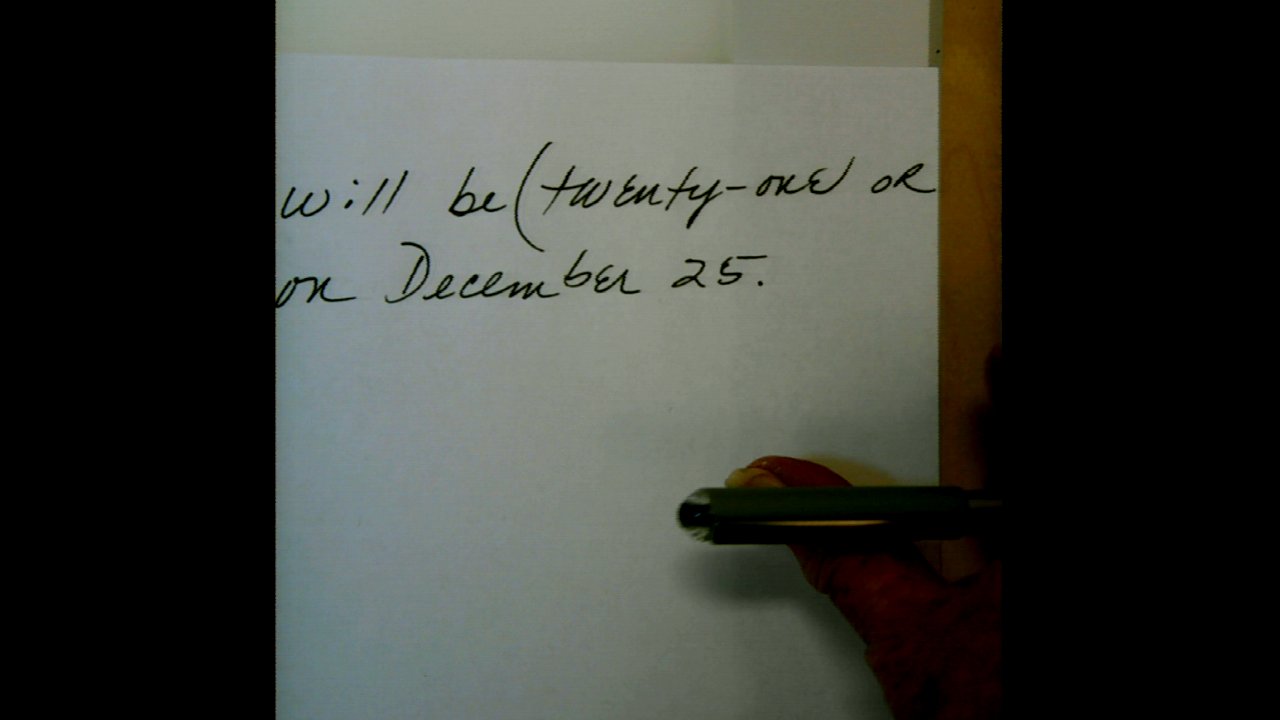 will be (twenty-one or
on December 25.